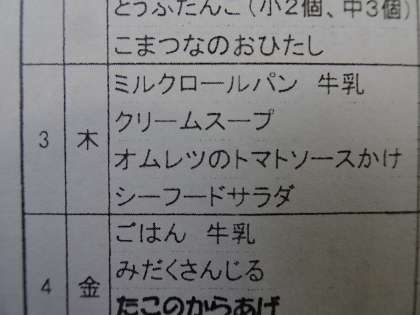 とうふだんご(小2個、中3個)
こまつなのおひたし
3 木 ミルクロールパン 牛乳
クリームスープ
オムレツのトマトソースかけ
シーフードサラダ
4 金 ごはん 牛乳
みだくさんじる
たこのからあげ